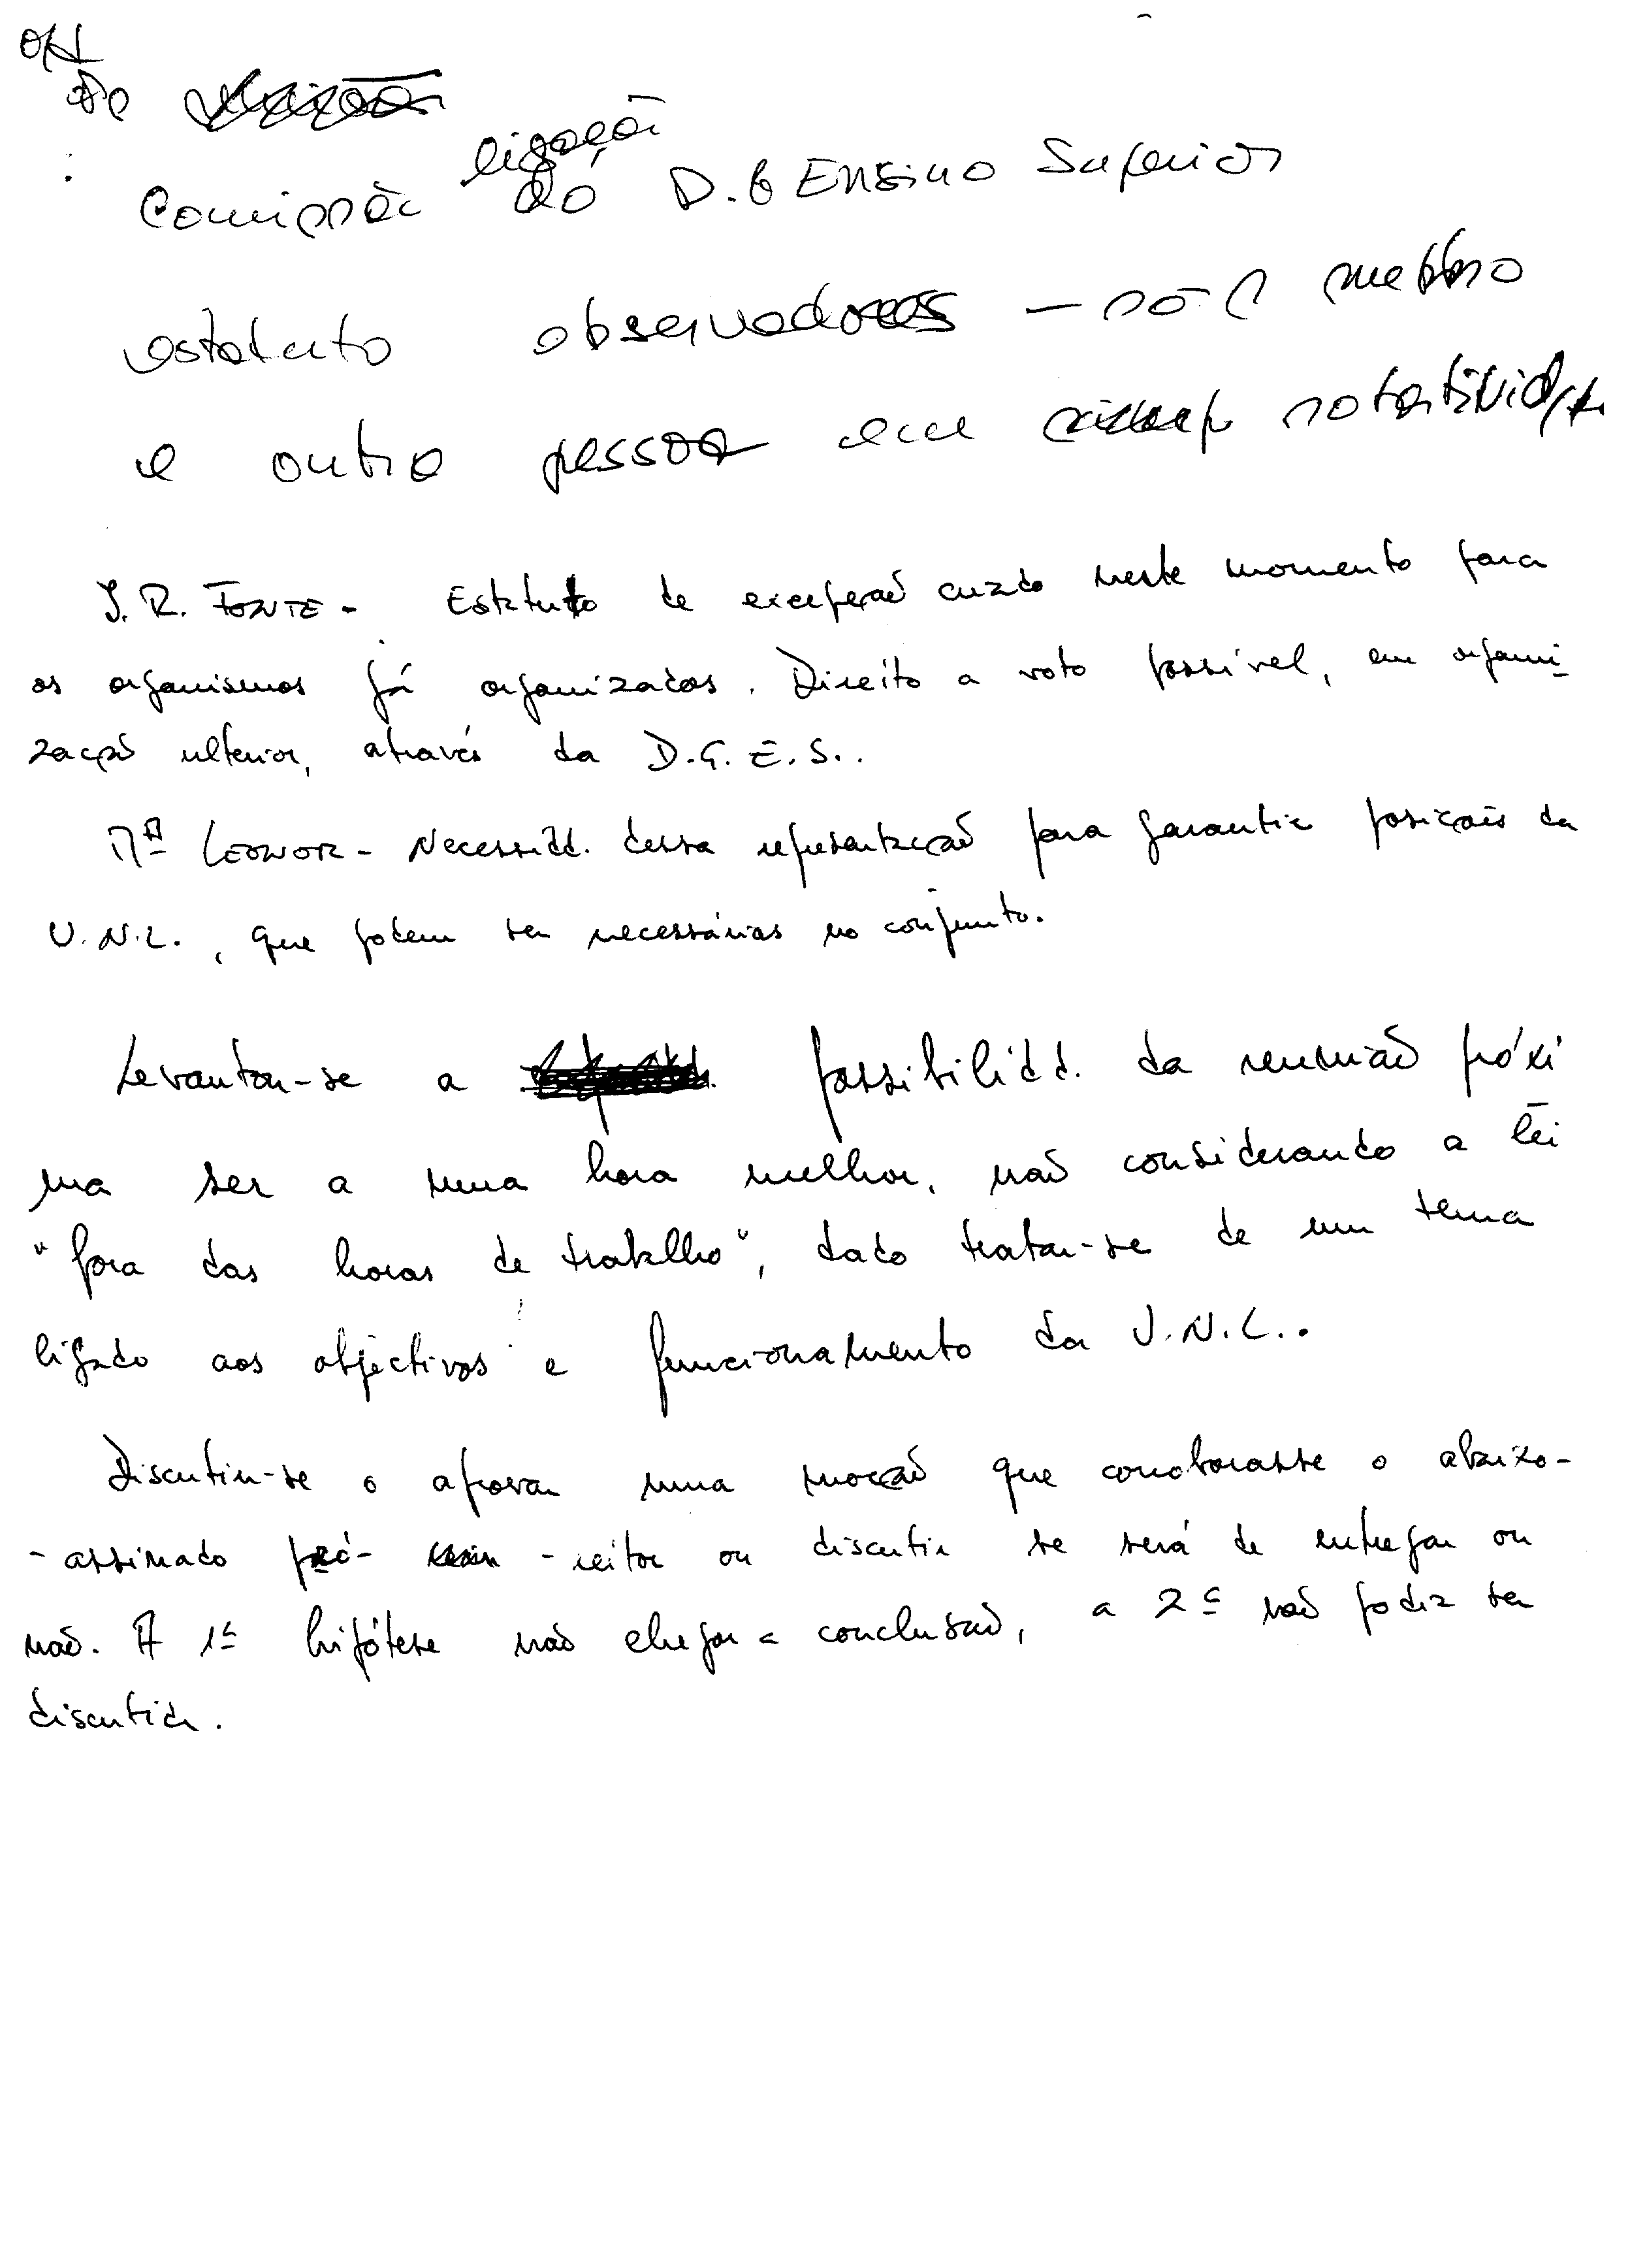 Comissão ligação
do D.G Ensino Superior
estatuto observadores —
e outra pessoa em rotatividade
J. R. FONTE - Estatuto de excepção criado neste momento para
os organismos já organizados. Direito a voto possível, em organi-
zação ulterior, através da D.G.E.S..
Mª LEONOR - Necessidd. dessa representação para garantir posições da
U.N.L., que podem ser necessárias no conjunto.
Levantou-se a possibilidd. da reunião próxi
ma ser a uma hora melhor, não considerando a lei
"fora das horas de trabalho", dado tratar-se de um tema
ligado aos objectivos e funcionamento da U.N.L..
Discutiu-se o aprovar uma moção que corroborasse o abaixo-
-assinado pró- -reitor ou discutir se será de entregar ou
não. A 1ª hipótese não chegou a conclusão, a 2ª não podia ser
discutida.